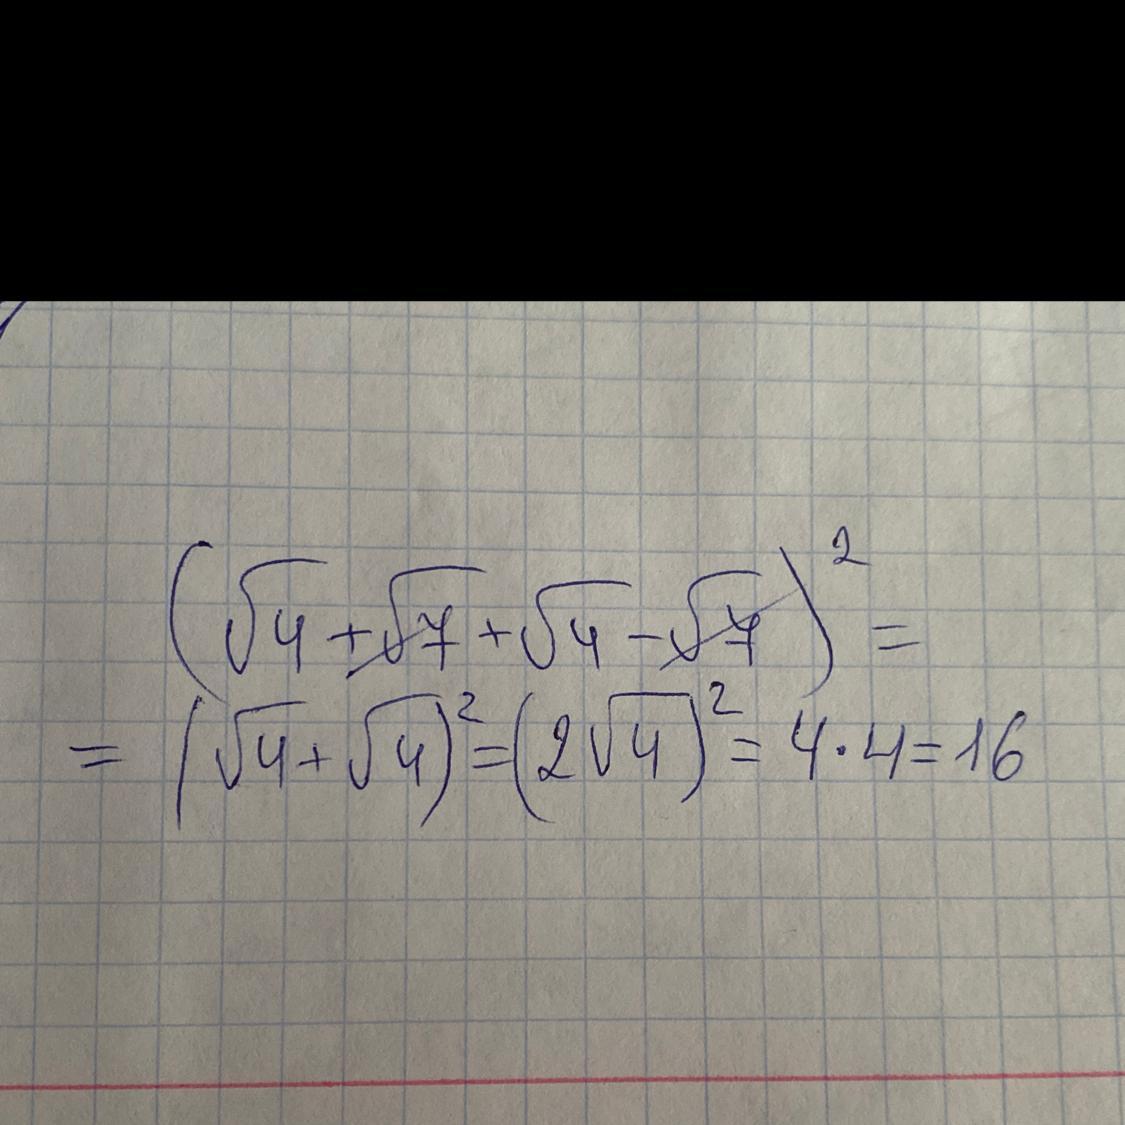 (√4 + √7 + √4 - √7)² =
= (√4 + √4)² = (2√4)² = 4 · 4 = 16